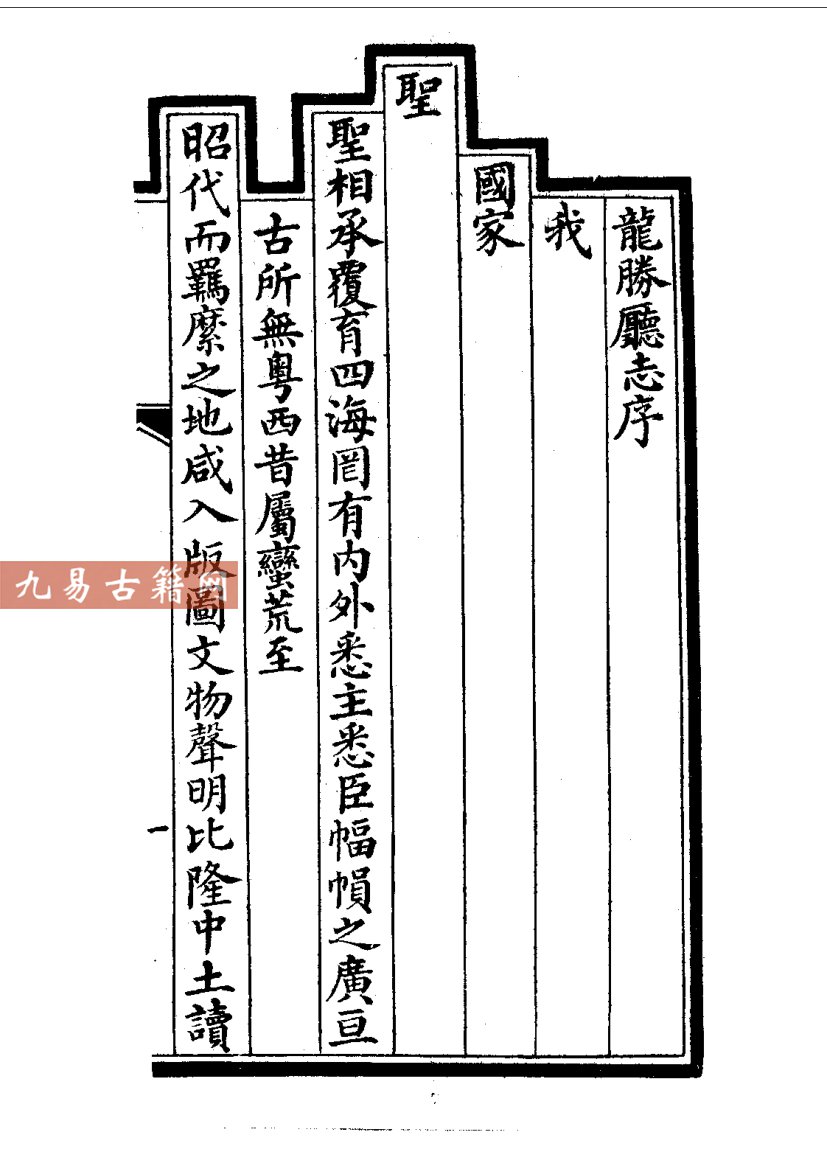 龍勝廳志序
我
國家
聖
聖相承覆育四海罔有内外悉主悉臣幅幀之廣亘
古所無粤西昔屬蠻荒至
昭代而羈縻之地咸入版圖文物聲明比隆中土讀
一
九易古籍网